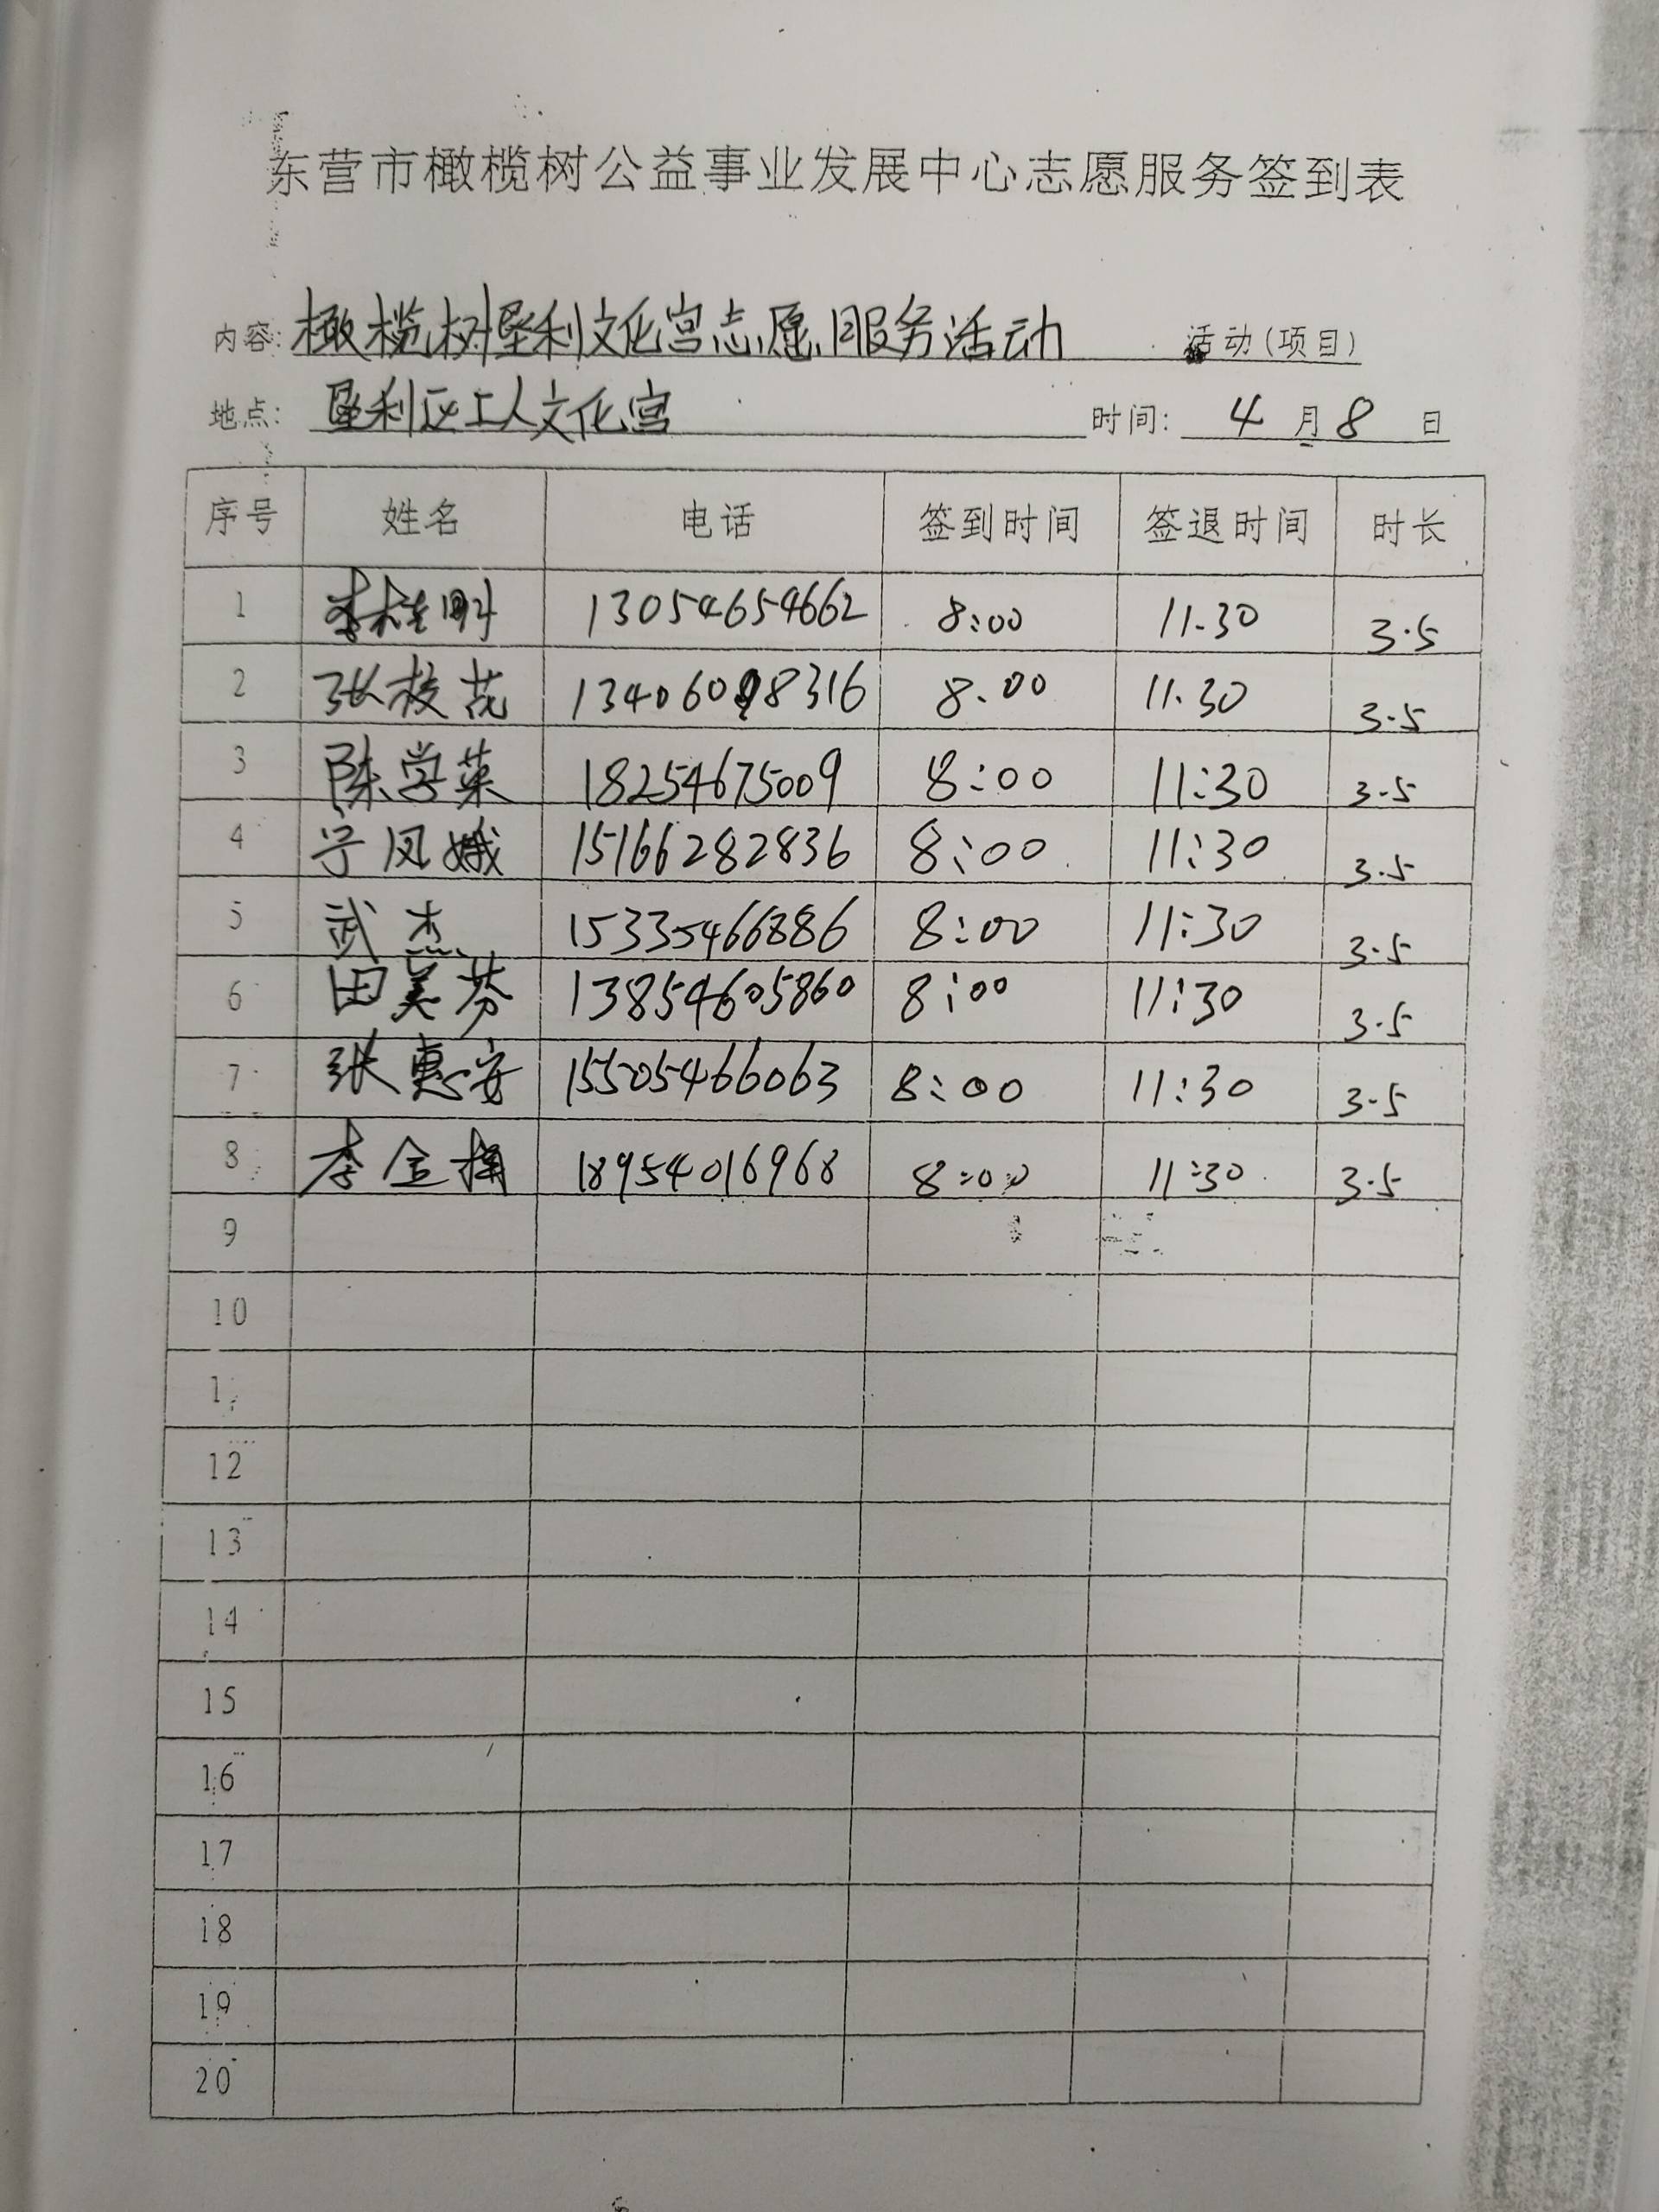 东营市橄榄树公益事业发展中心志愿服务签到表
内容: 橄榄树垦利文化宫志愿服务活动 活动(项目)
地点: 垦利区工人文化宫 时间: 4月8日
序号 姓名 电话 签到时间 签退时间 时长
1 李 13054654662 8:00 11.30 3.5
2 张枝花 13406098316 8.00 11.30 3.5
3 陈学英 18254675009 8:00 11:30 3.5
4 宁凤娥 15166282836 8:00 11:30 3.5
5 武杰 15335466886 8:00 11:30 3.5
6 田美芬 13854605860 8:00 11:30 3.5
7 张惠安 15505466063 8:00 11:30 3.5
8 李金梅 18954016968 8:00 11:30 3.5
9
10
1
12
13
14
15
16
17
18
19
20